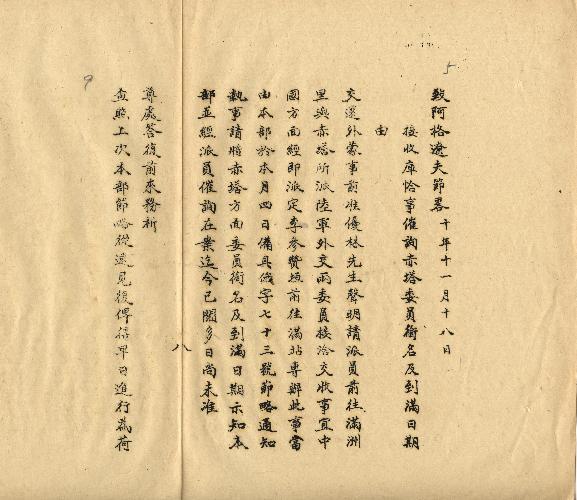 5
致阿格遼夫節畧 十年十一月十八日
接收庫恰事催詢赤塔委員銜名及到滿日期
由
交還外蒙事前准優林先生聲明請派員前往滿洲
里與赤塔所派陸軍外交兩委員接洽交收事宜中
國方面經即派定李參贊垣前往滿站專辦此事當
由本部於本月四日備具俄字七十三號節略通知
執事請將赤塔方面委員銜名及到滿日期示知本
部並經派員催詢在案迄今已閱多日尚未准
八
尊處答復前來務祈
查照上次本部節略從速見復俾得早日進行為荷
9